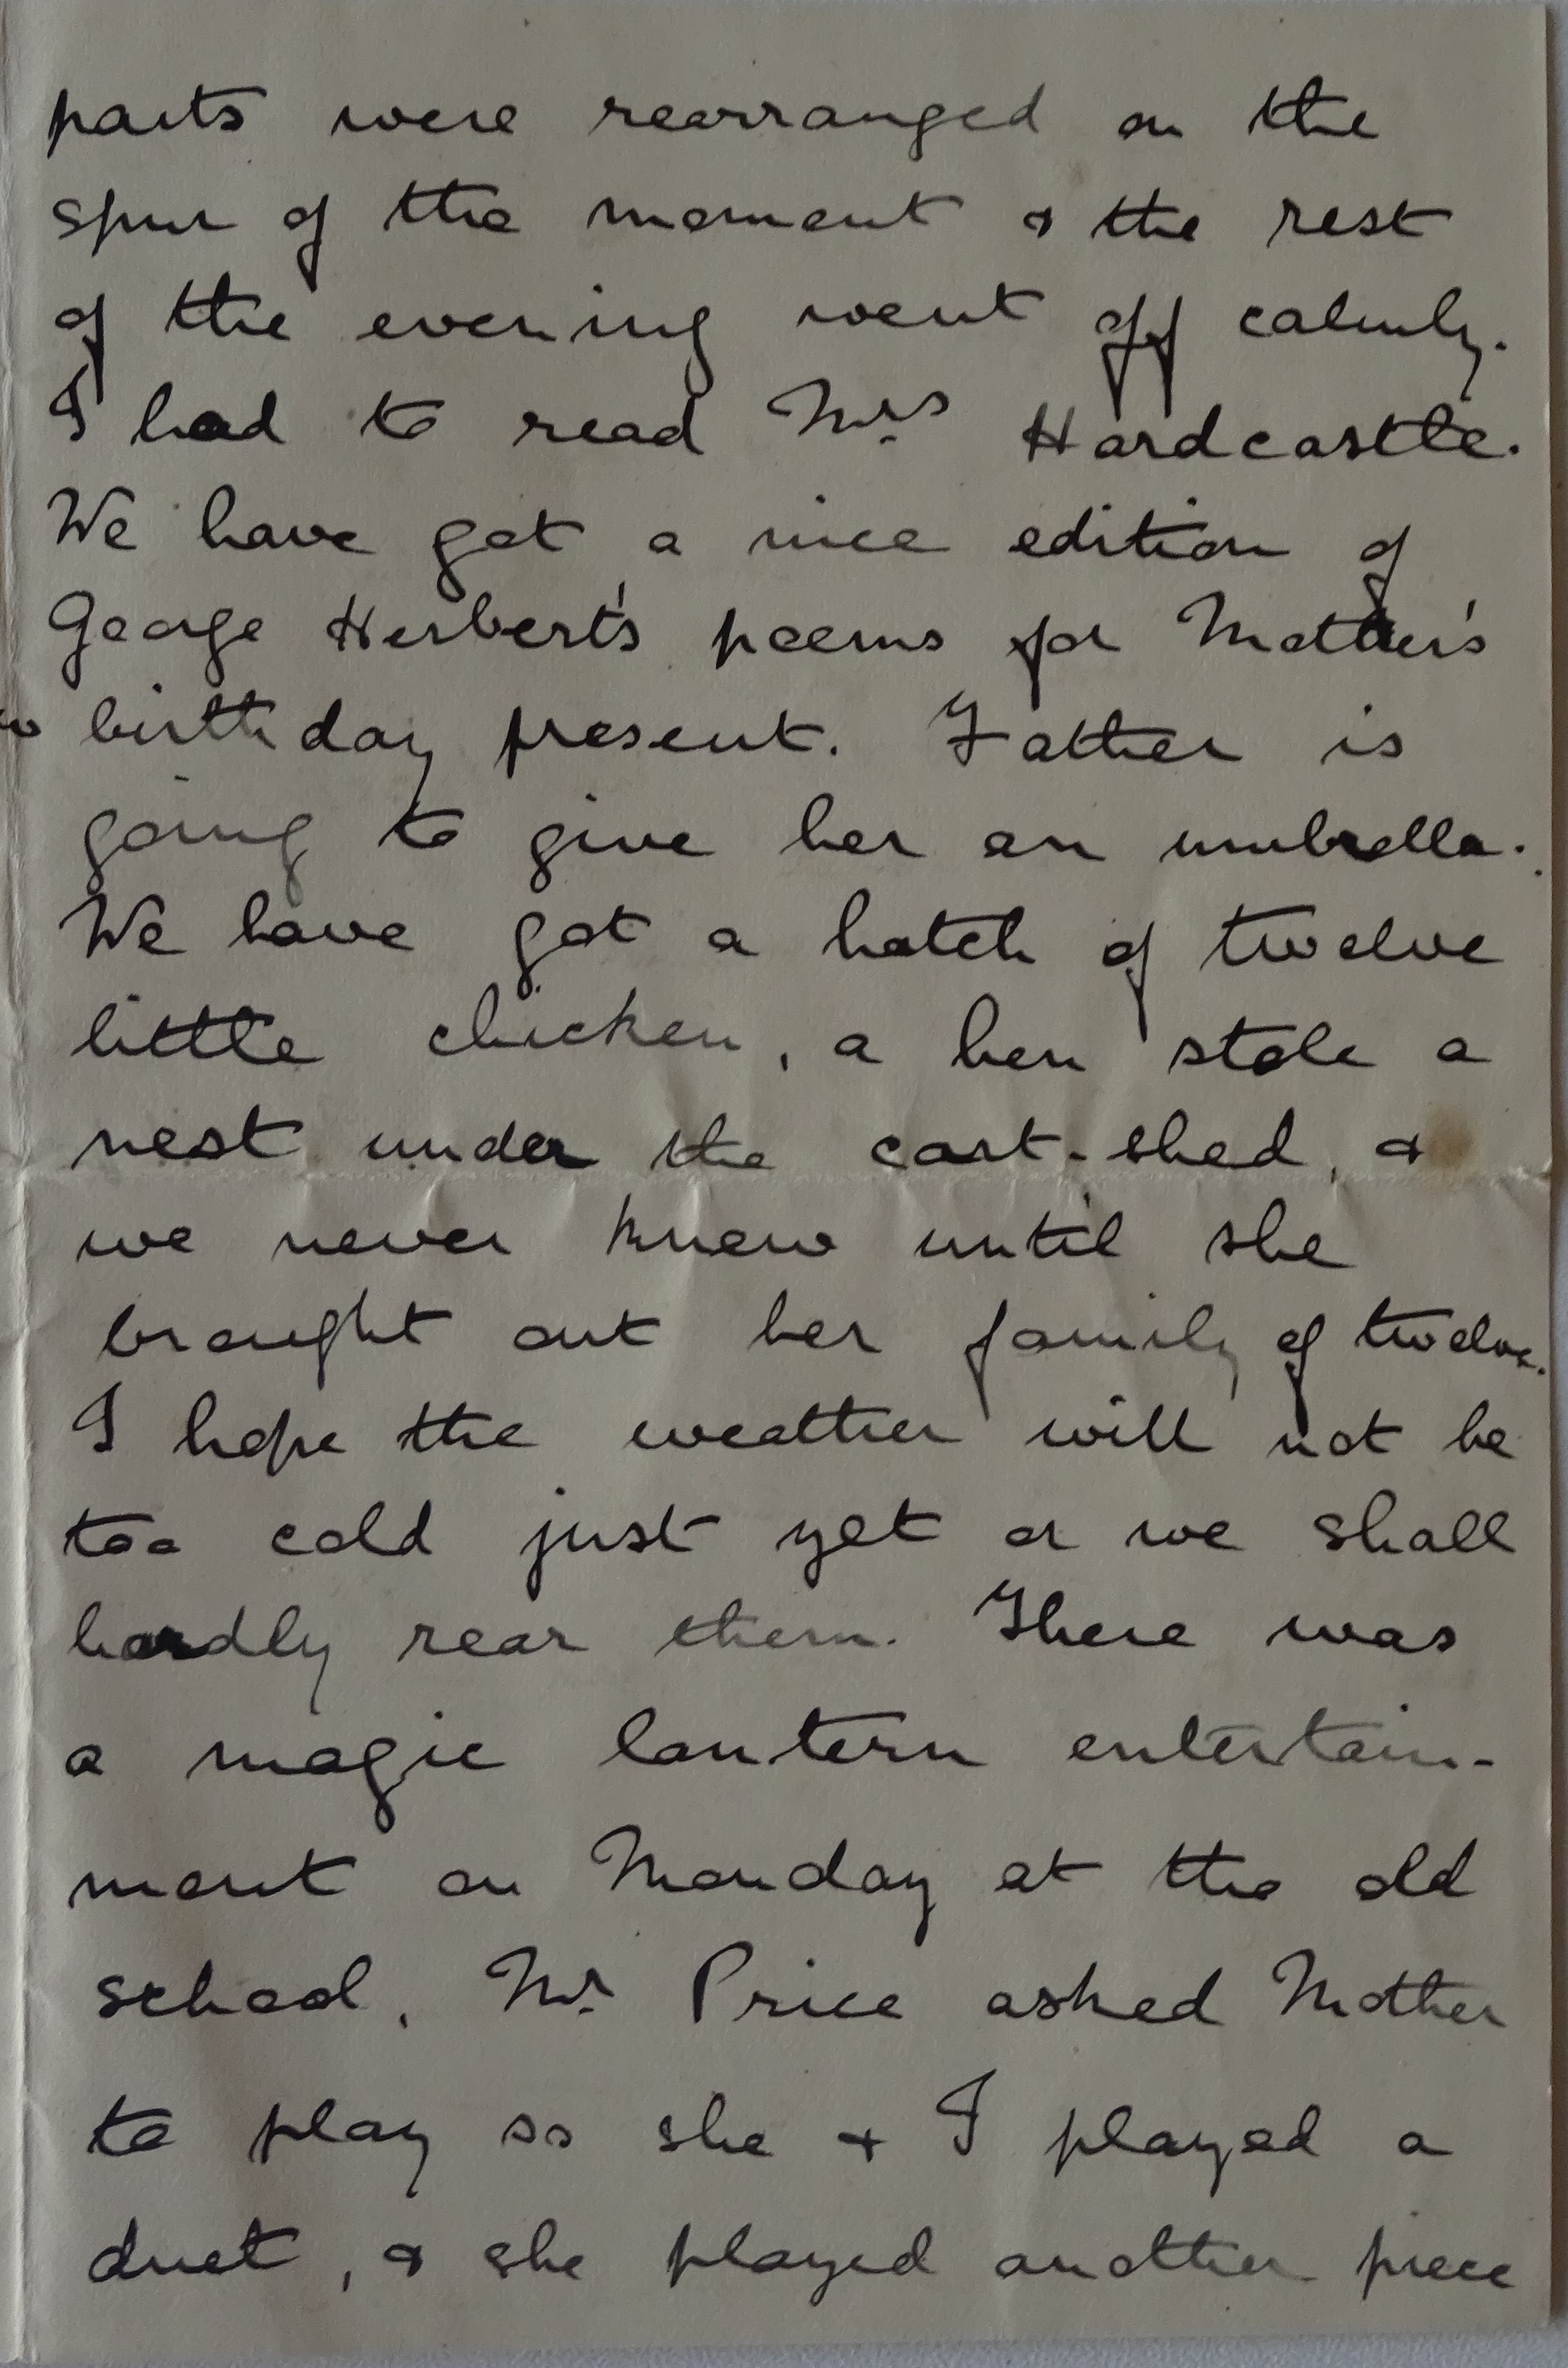 parts were rearranged on the
spur of the moment & the rest
of the evening went off calmly.
I had to read Mrs Hardcastle.
We have got a nice edition of
George Herbert's poems for Mother's
birthday present. Father is
going to give her an umbrella.
We have got a hatch of twelve
little chicken, a hen stole a
nest under the cart-shed, &
we never knew until she
brought out her family of twelve.
I hope the weather will not be
too cold just yet or we shall
hardly rear them. There was
a magic lantern entertain-
ment on Monday at the old
school, Mr Price asked Mother
to play so she & I played a
duet, & she played another piece